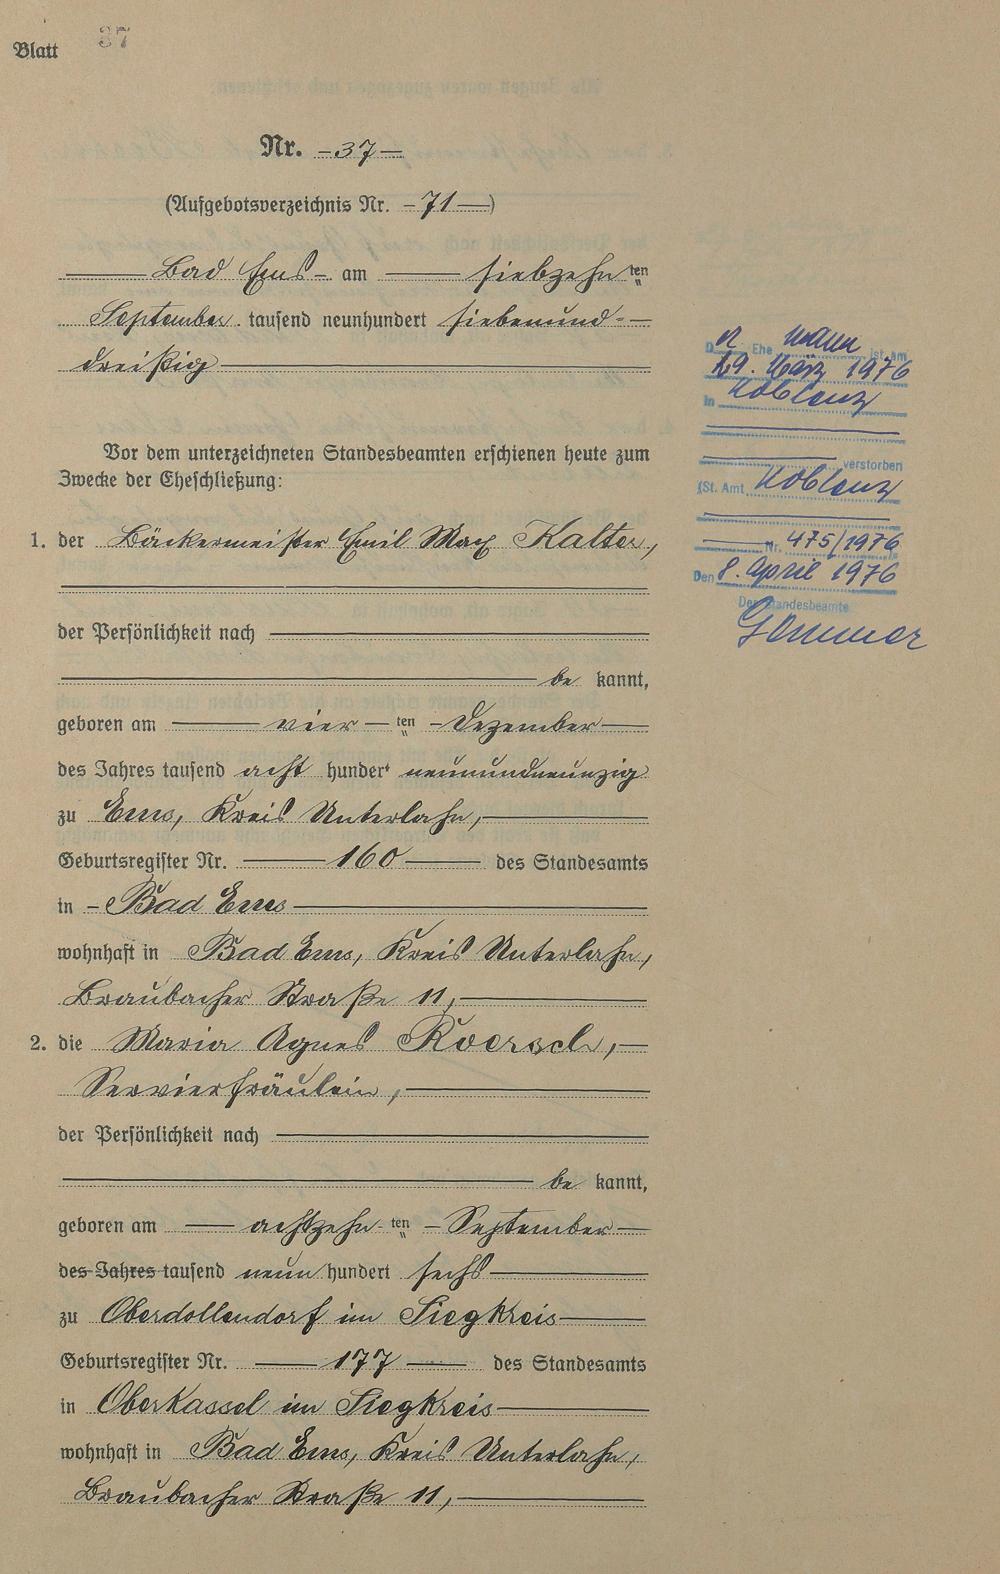 Blatt 37
Nr. -37-
(Aufgebotsverzeichnis Nr. -71-)
Bad Ems - am siebzehn ten
September tausend neunhundert siebenund-
dreißig
Vor dem unterzeichneten Standesbeamten erschienen heute zum
Zwecke der Eheschließung:
1. der Bäckermeister Emil Max Kalter,
der Persönlichkeit nach
be kannt,
geboren am vier ten Dezember
des Jahres tausend acht hundert neunundneunzig
zu Ems, Kreis Unterlahn,
Geburtsregister Nr. 160 des Standesamts
in - Bad Ems
wohnhaft in Bad Ems, Kreis Unterlahn,
Braubacher Straße 11,
2. die Maria Agnes Roersch,
Servierfräulein,
der Persönlichkeit nach
be kannt,
geboren am achtzehn ten - September
des Jahres tausend neun hundert sechs
zu Oberdollendorf im Siegkreis
Geburtsregister Nr. 177 des Standesamts
in Oberkassel im Siegkreis
wohnhaft in Bad Ems, Kreis Unterlahn,
Braubacher Straße 11,
Der Ehemann ist am
29. März 1976
in Koblenz
verstorben
(St. Amt Koblenz
Nr. 475/1976
Den 8. April 1976
Der Standesbeamte